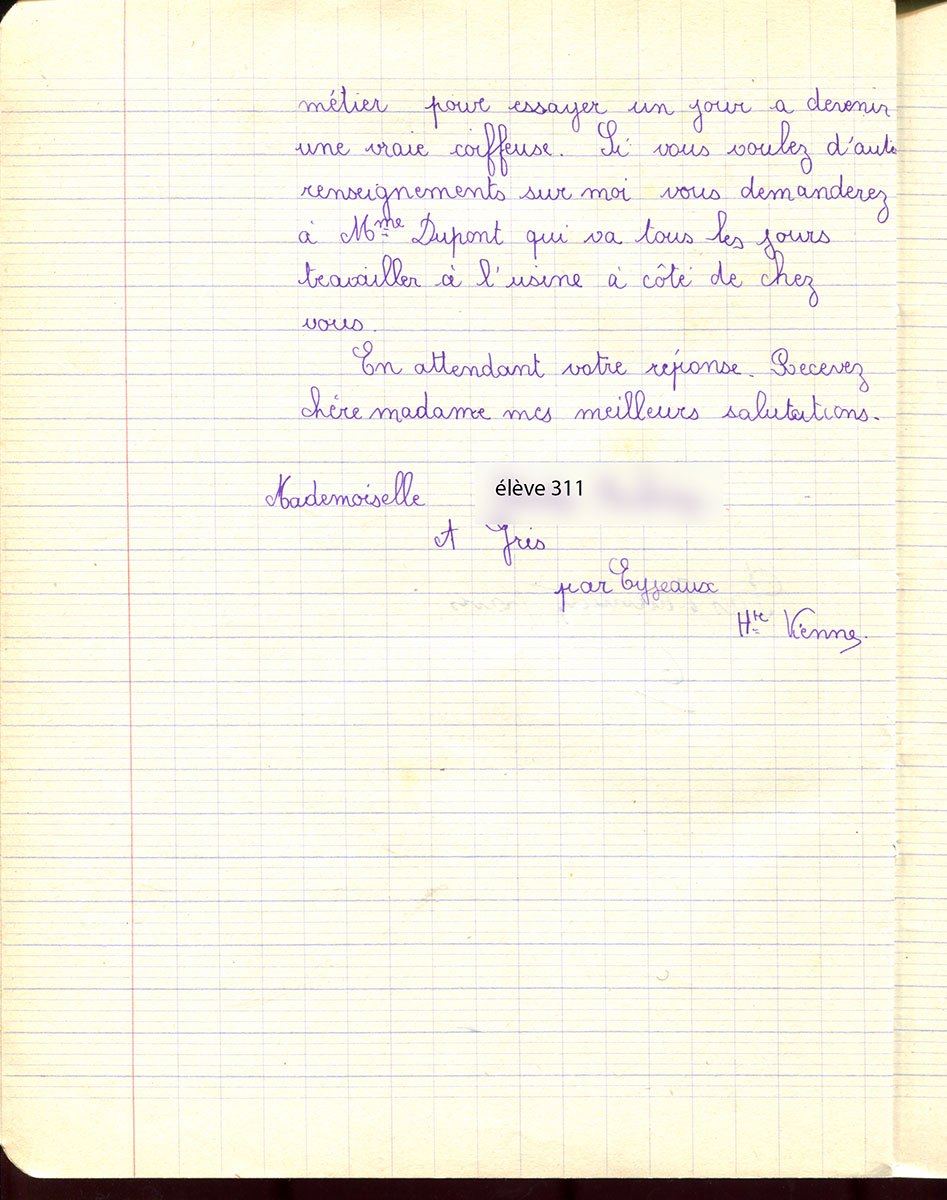 métier pour essayer un jour a devenir
une vraie coiffeuse. Si vous voulez d'aut
renseignements sur moi vous demanderez
à Mme Dupont qui va tous les jours
travailler à l'usine à côté de chez
vous.
En attendant votre réponse. Recevez
chère madame mes meilleurs salutations.
Mademoiselle élève 311
A Iris
par Eyjeaux
Hte Vienne.